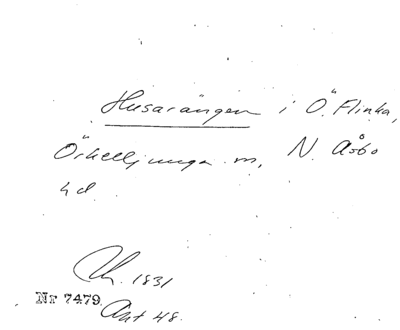 Husarängen i Ö. Flinka,
Örkelljunga m, N. Åsbo
hd
Lh. 1831
Nr 7479.
Akt 48.